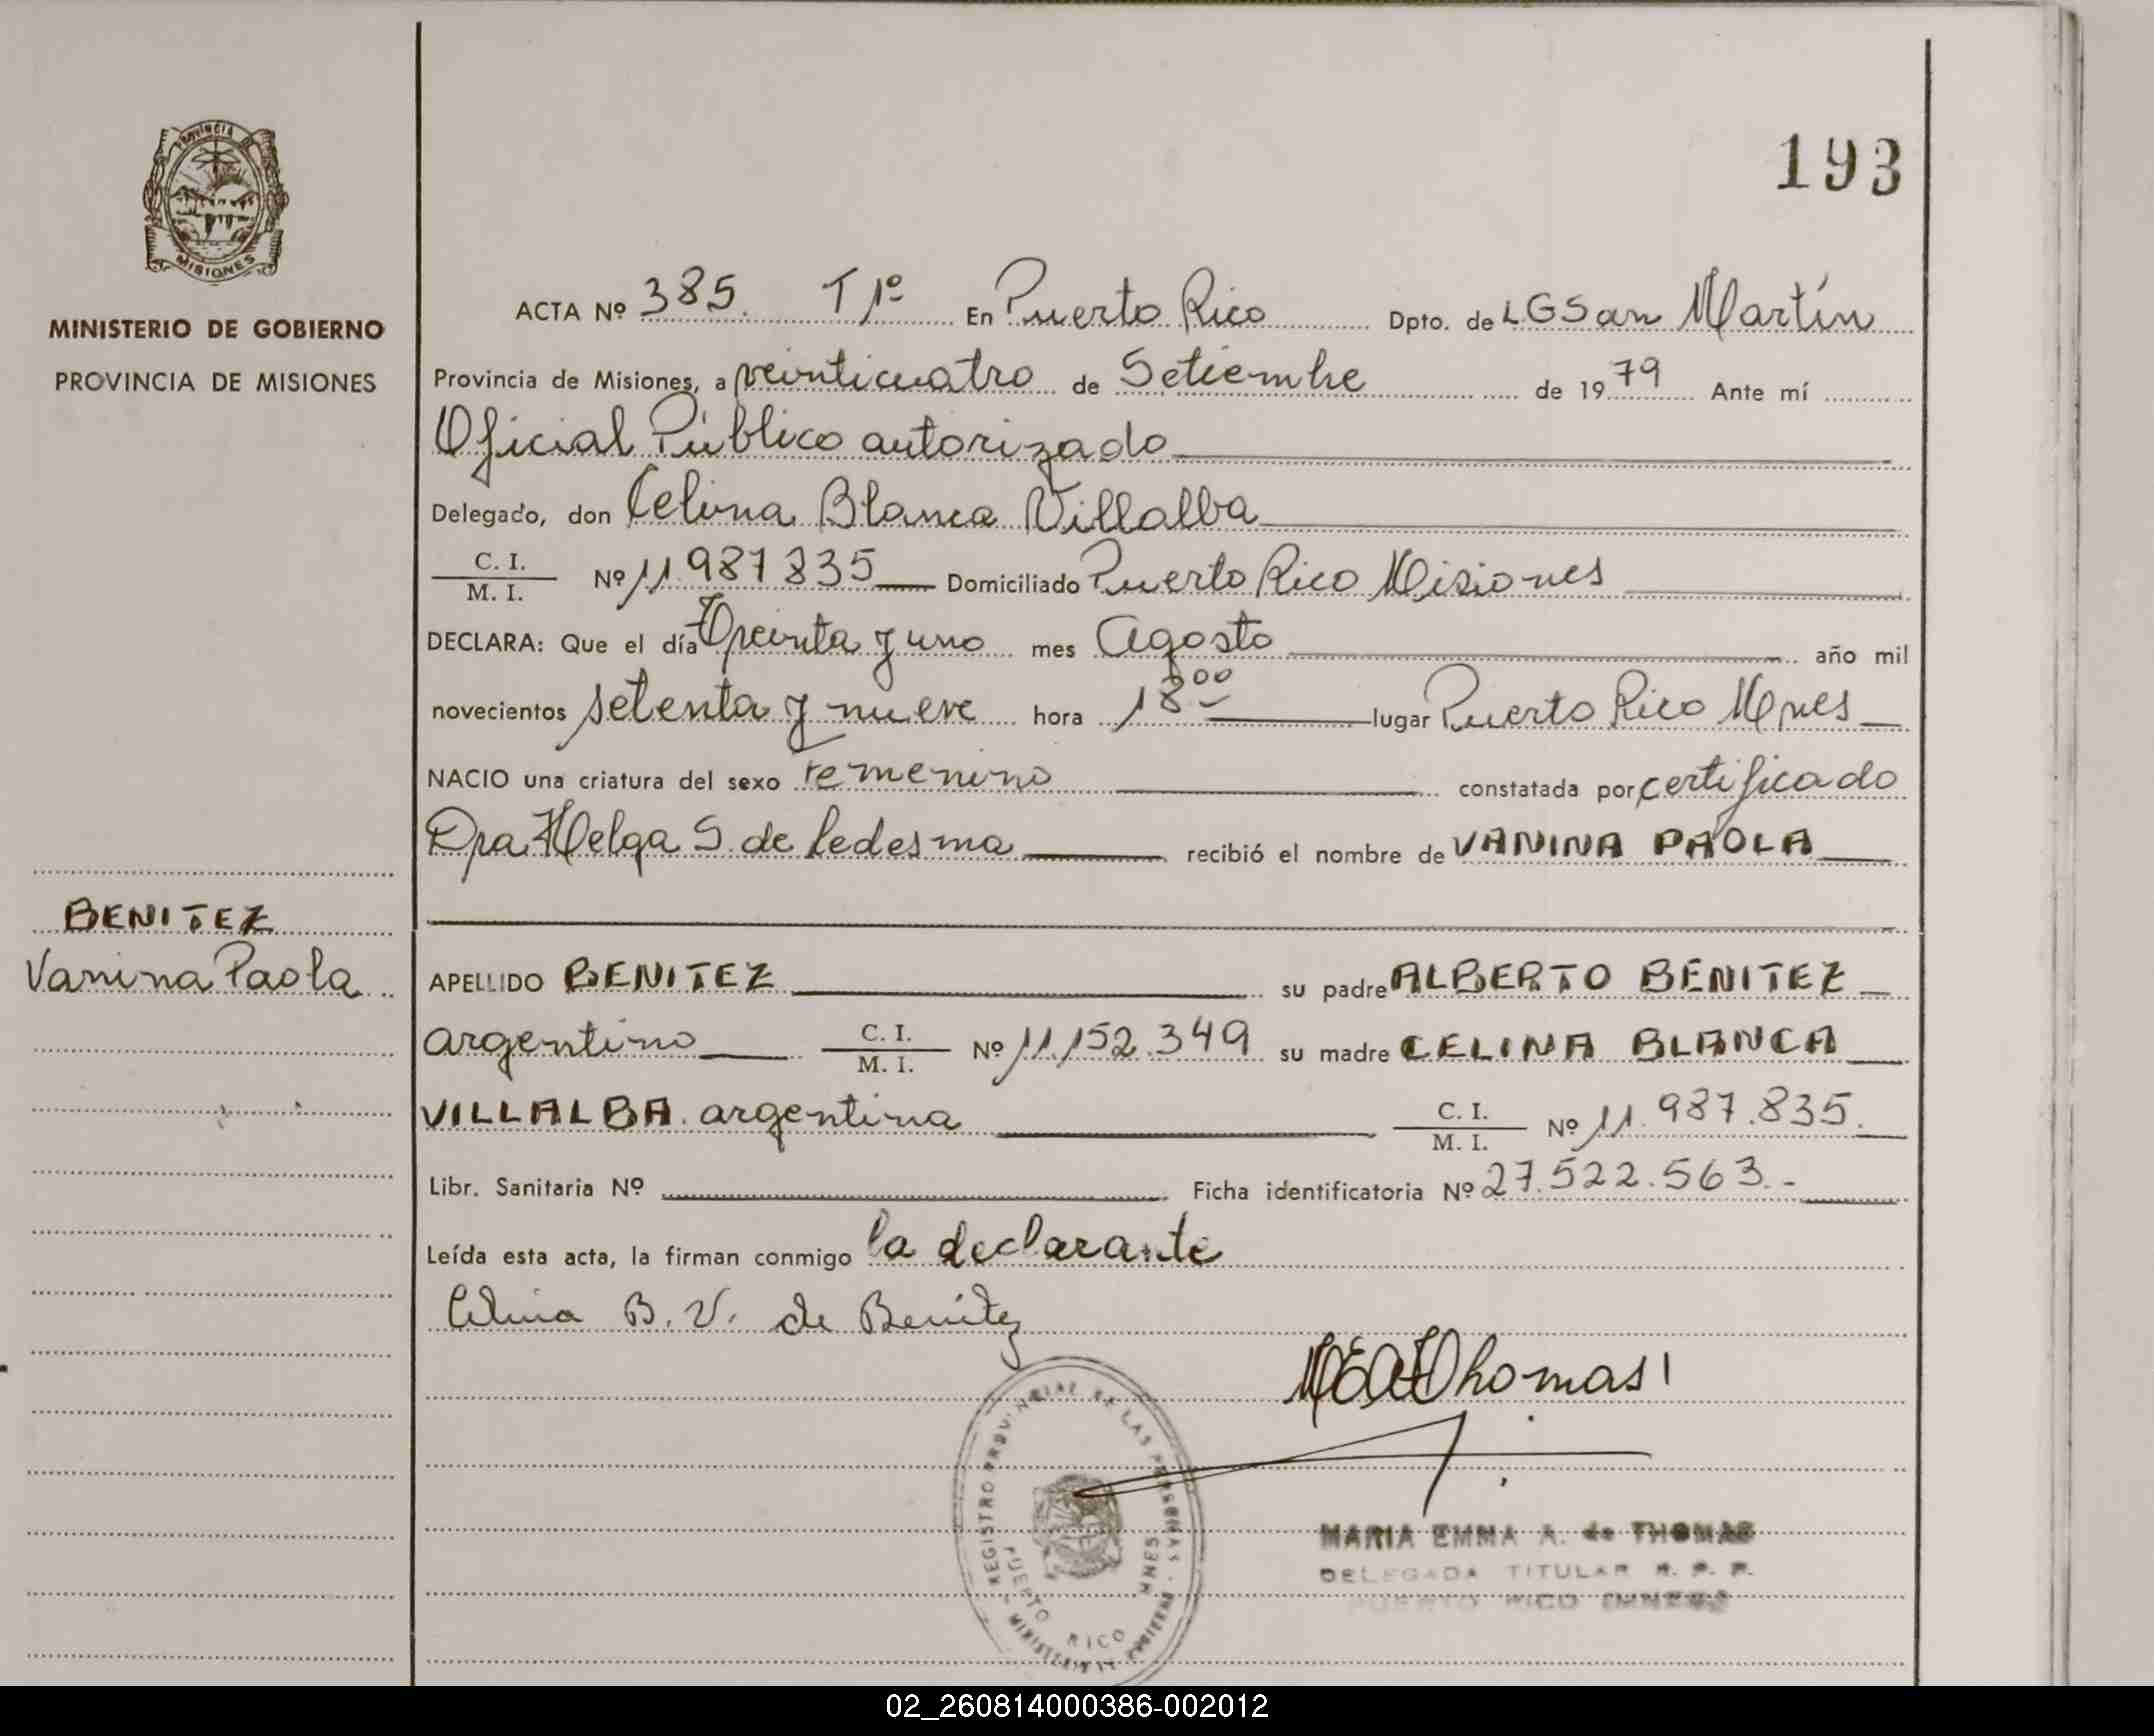 193
PROVINCIA
MISIONES
MINISTERIO DE GOBIERNO
PROVINCIA DE MISIONES
BENITEZ
Vanina Paola
ACTA Nº 385. T 1º En Puerto Rico Dpto. de LGSan Martín
Provincia de Misiones, a veinticuatro de Setiembre de 1979 Ante mí
Oficial Público autorizado
Delegado, don Celina Blanca Villalba
C. I.
M. I. Nº 11 987 835 Domiciliado Puerto Rico Misiones
DECLARA: Que el día Treinta y uno mes Agosto año mil
novecientos setenta y nueve hora 18 00 lugar Puerto Rico Mnes
NACIO una criatura del sexo femenino constatada por certificado
Dra Helga S. de Ledesma recibió el nombre de VANINA PAOLA
APELLIDO BENITEZ su padre ALBERTO BENITEZ
argentino C. I. M. I. Nº 11.152.349 su madre CELINA BLANCA
VILLALBA argentina C. I. M. I. Nº 11.987.835.
Libr. Sanitaria Nº Ficha identificatoria Nº 27.522.563.-
Leída esta acta, la firman conmigo la declarante
Celina B. V. de Benitez
MEAThomas
REGISTRO PROVINCIAL DE LAS PERSONAS
PUERTO RICO MNES
MARIA EMMA A. de THOMAS
DELEGADA TITULAR R. P. P.
PUERTO RICO
02_260814000386-002012